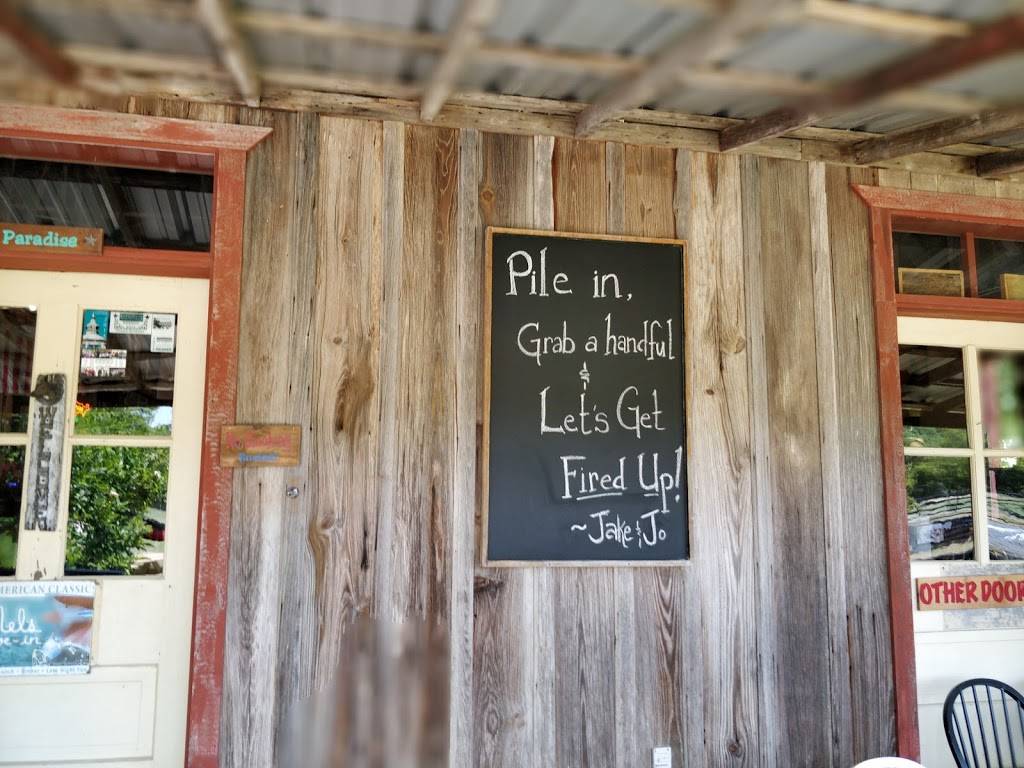 Paradise
WELCOME
Pile in,
Grab a handful
&
Let's Get
Fired Up!
~ Jake & Jo
MERICAN CLASSIC
els
e-in
OTHER DOOR